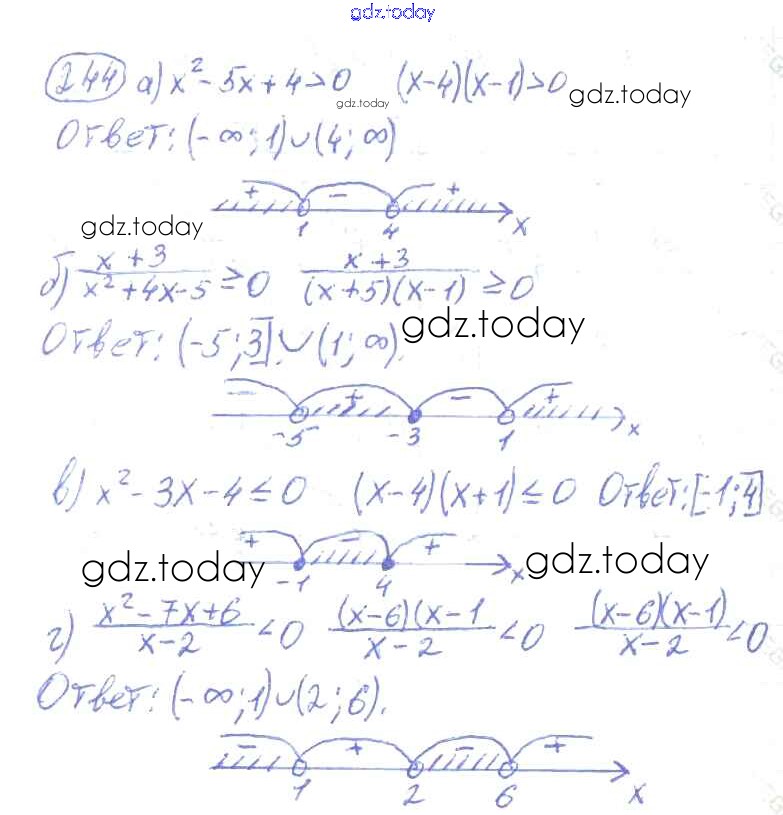 gdz.today
244 а) x² - 5x + 4 > 0 (x-4)(x-1) > 0 gdz.today
gdz.today
Ответ: (-∞; 1) ∪ (4; ∞)
+ - +
1 4 x
gdz.today
б) (x + 3)/(x² + 4x - 5) ≥ 0 (x + 3)/((x + 5)(x - 1)) ≥ 0
Ответ: (-5; 3] ∪ (1; ∞). gdz.today
- + - +
-5 -3 1 x
в) x² - 3x - 4 ≤ 0 (x-4)(x+1) ≤ 0 Ответ: [-1; 4]
+ - +
gdz.today -1 4 x gdz.today
г) (x² - 7x + 6)/(x - 2) < 0 (x-6)(x-1/(x - 2) < 0 (x-6)(x-1)/(x - 2) < 0
Ответ: (-∞; 1) ∪ (2; 6).
- + - +
1 2 6 x